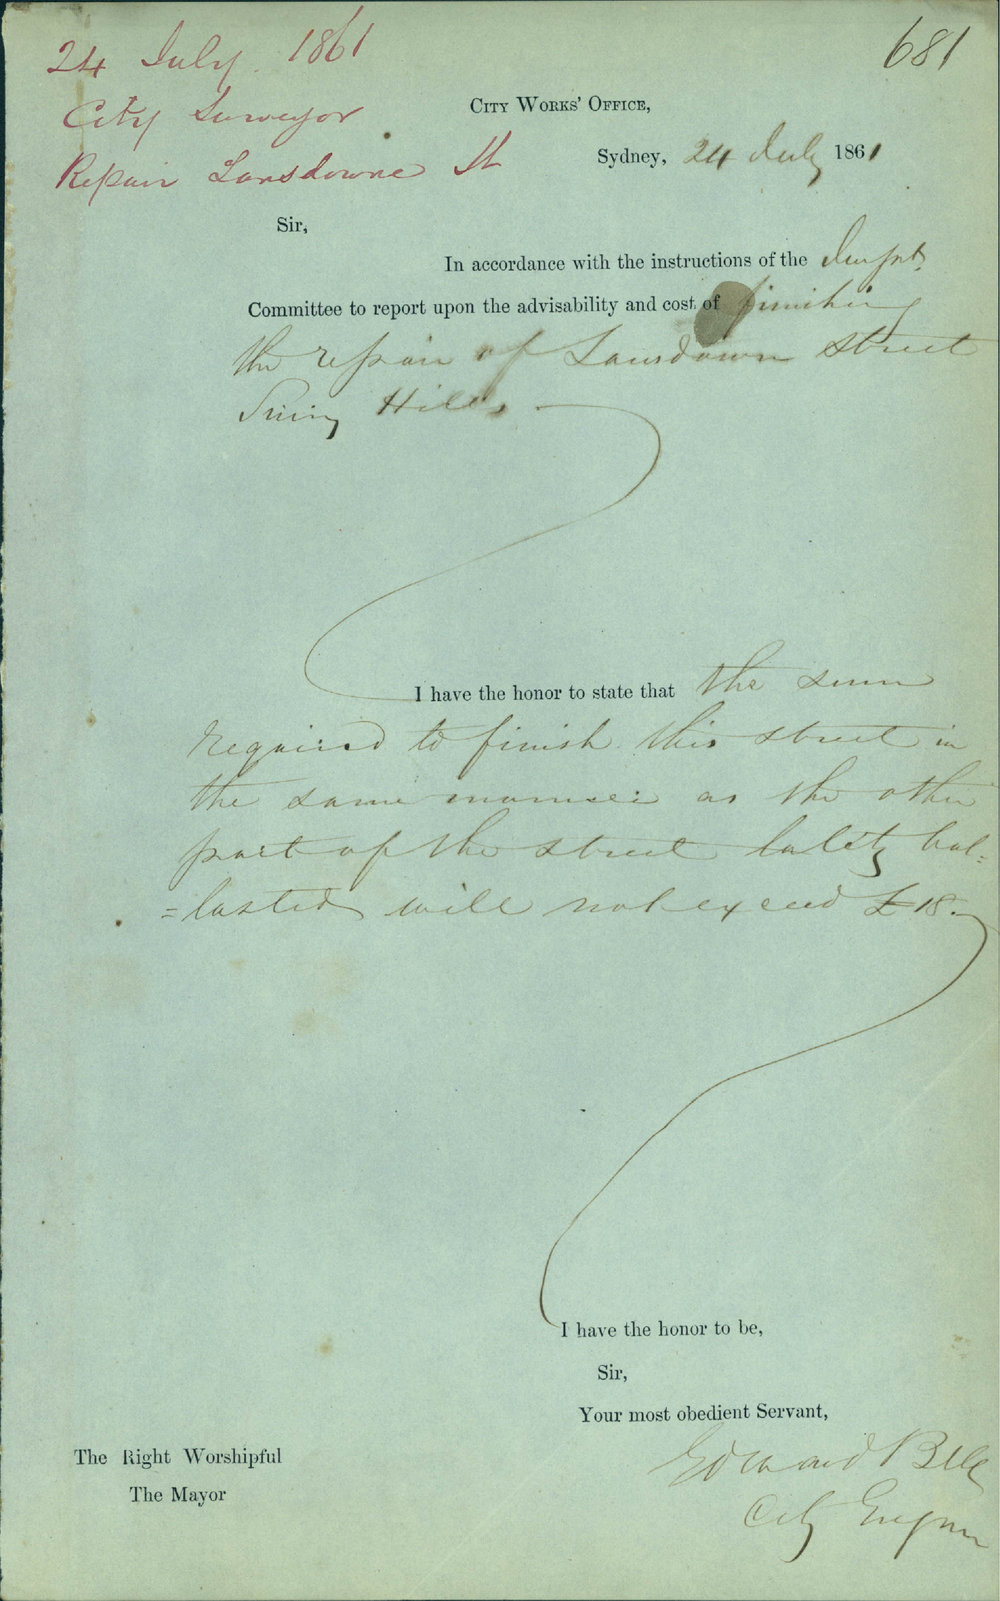 24 July 1861
681
City Surveyor
Repair Lansdowne St
City Works' Office,
Sydney, 24 July 1861
Sir,
In accordance with the instructions of the Impt.
Committee to report upon the advisability and cost of finishing
the repair of Lansdown street
Surry Hills
I have the honor to state that the sum
required to finish this street in
the same manner as the other
part of the street lately bal=
=lasted will not exceed £18.
I have the honor to be,
Sir,
Your most obedient Servant,
Edward Bell
City Engineer
The Right Worshipful
The Mayor